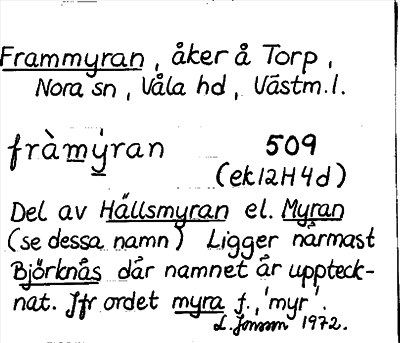 Frammyran, åker å Torp,
Nora sn, Våla hd, Västm.l.
fràm̲ý̲ran 509
(ek12H4d)
Del av Hällsmyran el. Myran
(se dessa namn) Ligger närmast
Björknäs där namnet är uppteck-
nat. Jfr ordet myra f., 'myr'.
L. Jonson 1972.